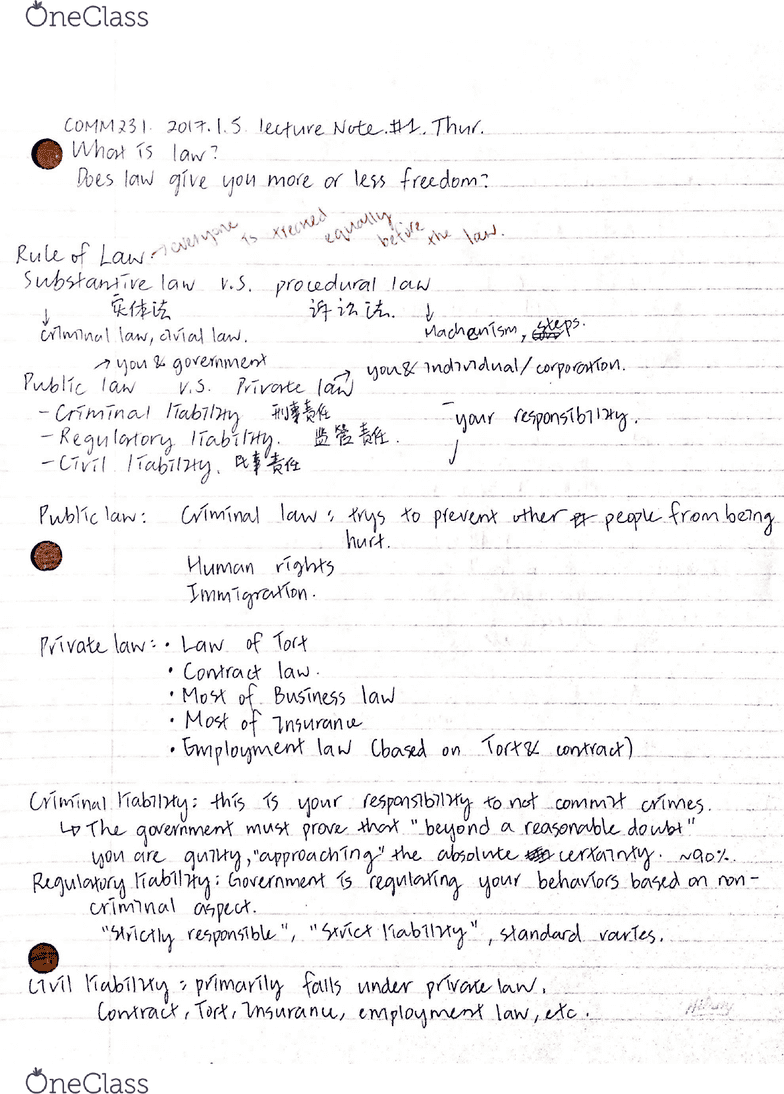 OneClass
COMM231. 2017.1.5. lecture Note.#1. Thur.
What is law?
Does law give you more or less freedom?
Rule of Law → everyone is treated equally before the law.
Substantive law v.s. procedural law
实体法 诉讼法.
↓ ↓
criminal law, civial law. Machenism, steps.
↗ you & government → you & individual/corporation.
Public law v.s. Private law
- Criminal liability 刑事责任 - your responsibility.
- Regulatory liability. 监管责任. ↓
- Civil liability. 民事责任
Public law: Criminal law: trys to prevent other people from being
hurt.
Human rights
Immigration.
Private law: • Law of Tort
• Contract law.
• Most of Business law
• Most of Insurance
• Employment law (based on Tort & contract)
Criminal liability: this is your responsibility to not commit crimes.
↳ The government must prove that "beyond a reasonable doubt"
you are guilty, "approaching" the absolute certainty. ~90%.
Regulatory liability: Government is regulating your behaviors based on non-
criminal aspect.
"Strictly responsible", "Strict liability", standard varies.
Civil liability: primarily falls under private law.
Contract, Tort, Insurance, employment law, etc.
OneClass